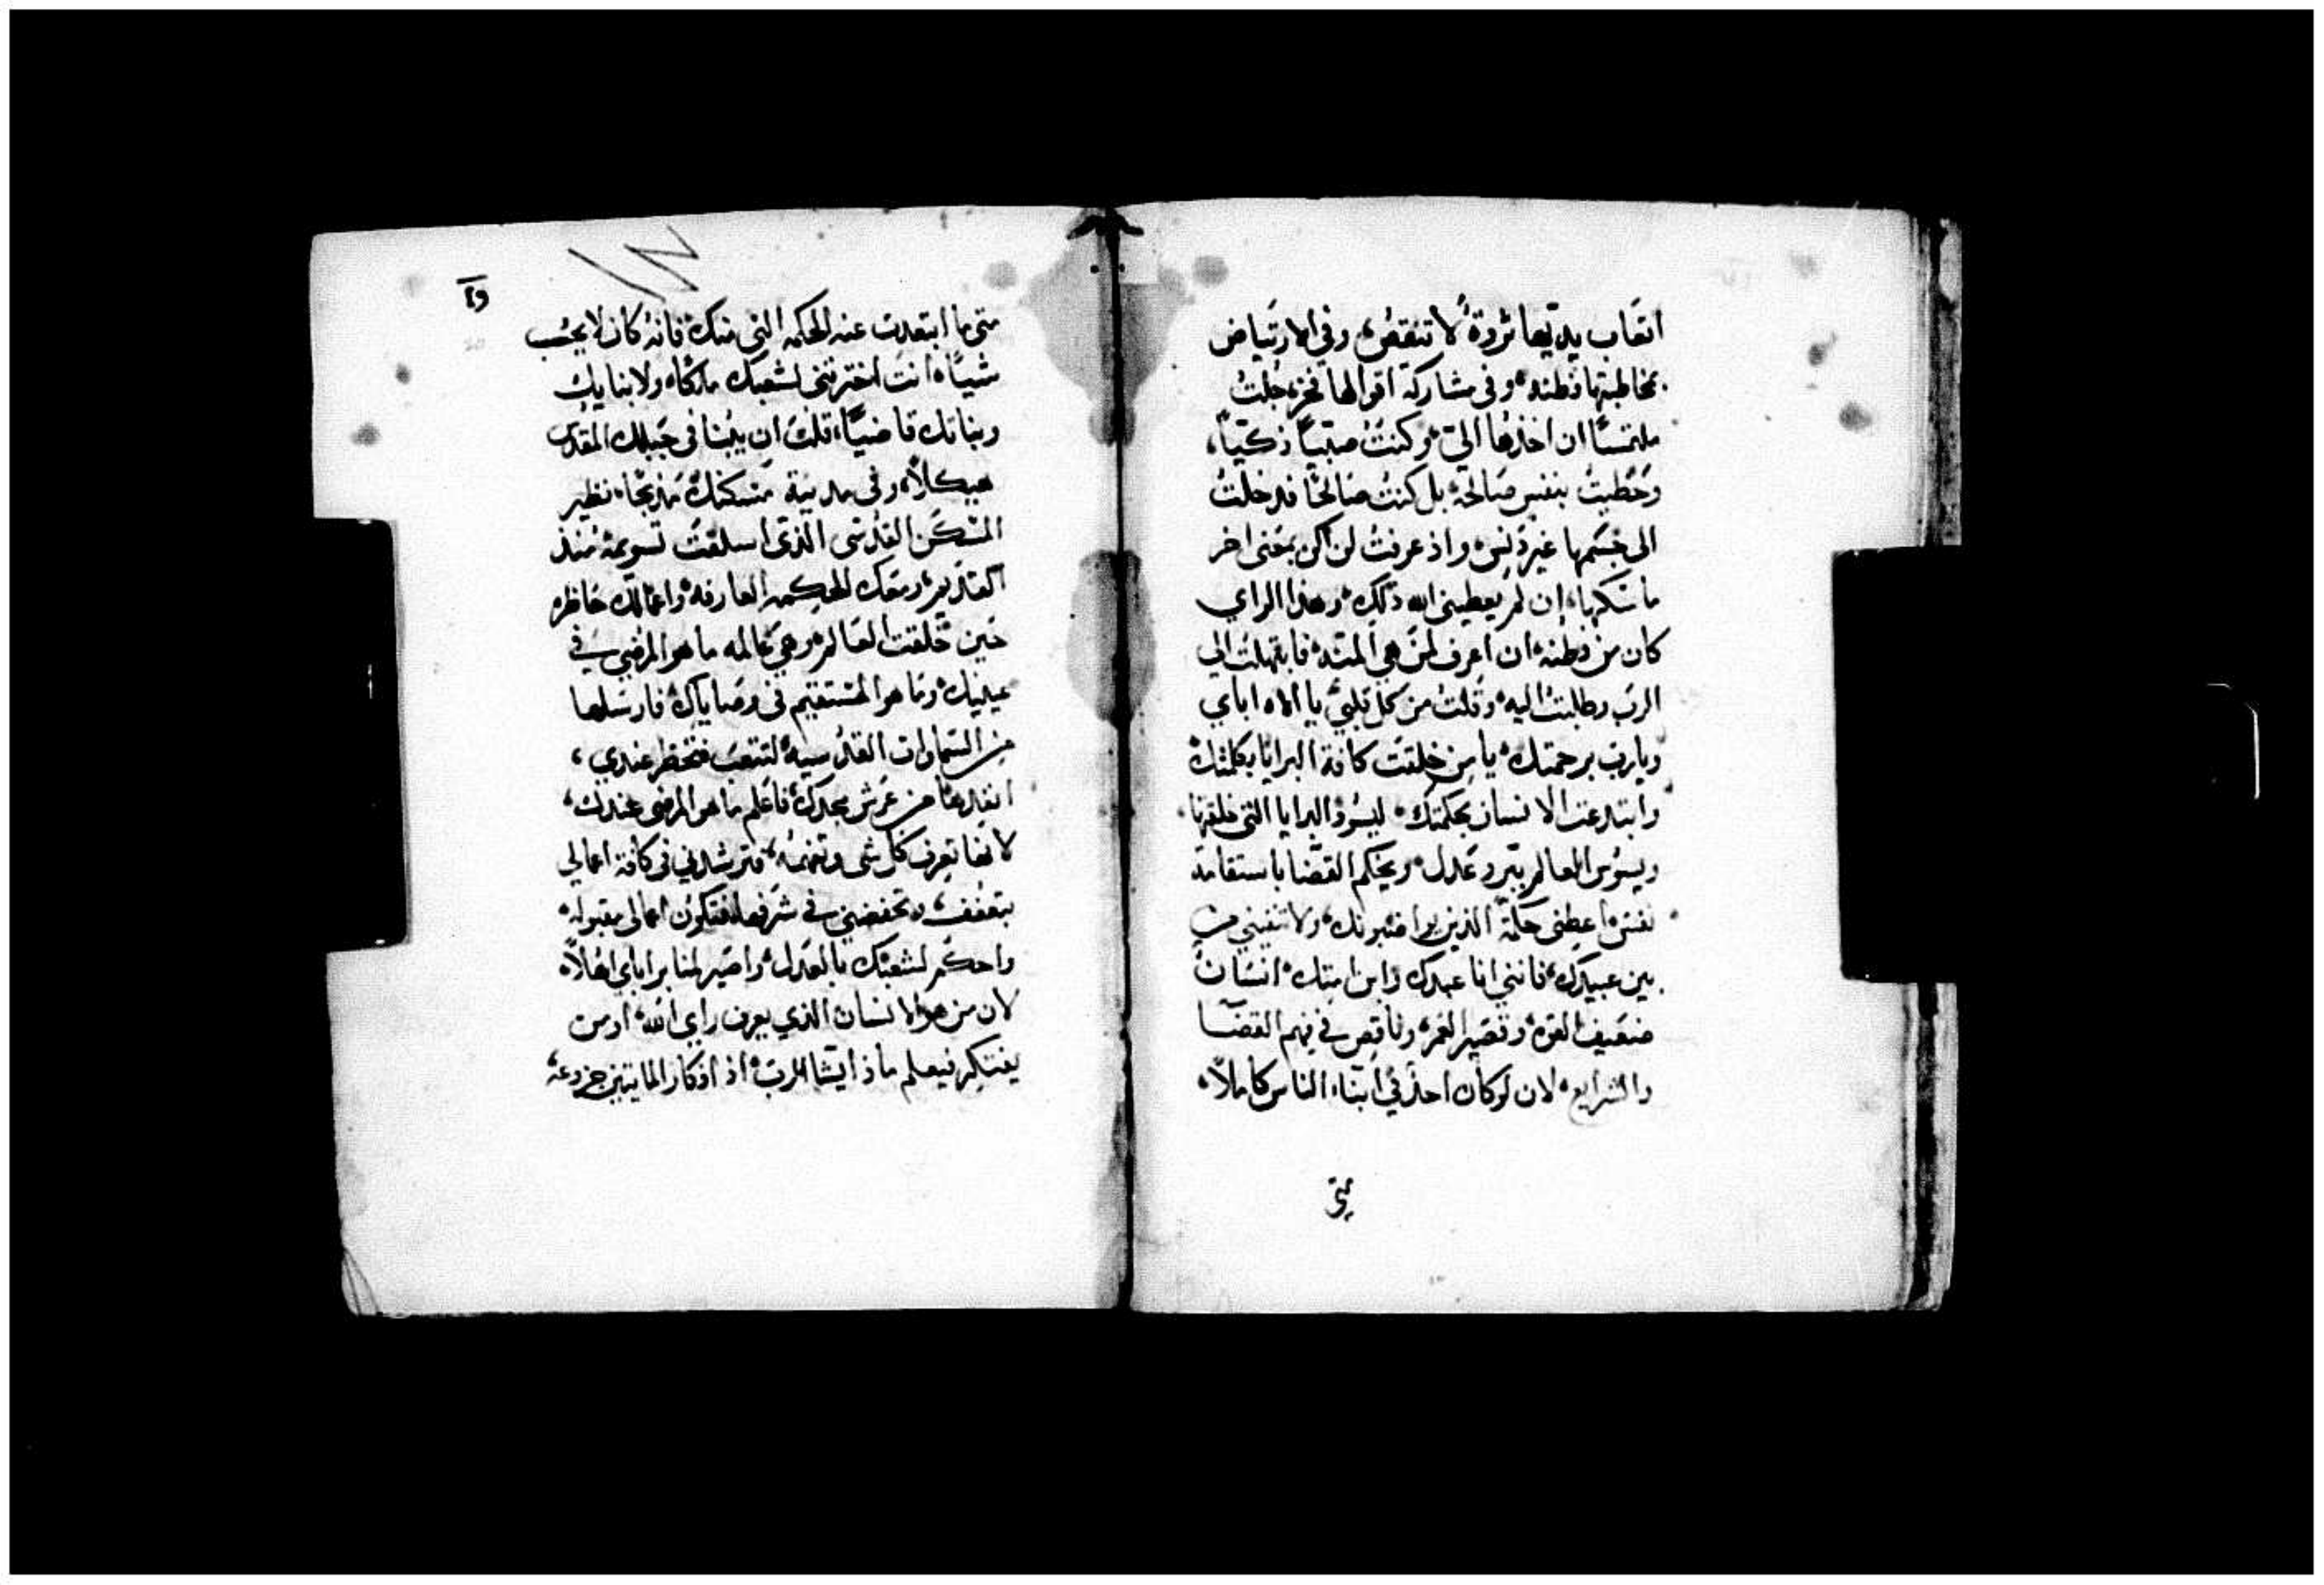 اتعاب يديها ثروةً لا تنقص، وفي الارتياض
بمخاطبتها فطنه، وفى مشاركة اقوالها فخر، جلتُ
ملتمسًا ان اخذها اليّ، وكنتُ صبيًا ذكيًا،
وحَظيتُ بنفسٍ صَالحة، بل كنتُ صَالحًا فدخلتُ
الى جَسَمها غير دَنِس، واذ عرفتُ لن اكن بمَعنى اخر
ماسَكها، إن لم يعطيني الله ذلك، وهذا الراي
كان من فطنه، ان اعرف لمن هي المنّه، فابتهلتُ الي
الربّ وطلبتُ اليه، وقلتُ من كل قلبي، يا الاه اباي
ويارب برحمتك، يا من خلقت كافة البرايا بكلمتك
وابتدعت الانسان بحكمتك، ليسُود البرايا التى خلقتها
ويسوس العالم ببّر وعَدل، ويحكم القضَا باستقامة
نفس، اعطِنى حكمَة الذين
بين عبيدك، فانني انا عبدك وابن امتك، انسَانٌ
ضعَيف القوه، وقصَير العُمر، وناقص في فهم القضَا
والشرايع، لان لو كان احدٌ في ابنَاء الناس كاملاً،
متى
١٥
متى ما ابتعدت عنه الحكمه التي منك، فانه كان لا يُحسَب
شيًا، انتَ اخترتني لشعبك ملكًا، ولابنايك
وبناتك قاضيًا، قلتَ ان يُبنا فى جَبلك المقدس
هيكلاً، وفى مدينة مَسكنك مَذبحًا، نظير
المسْكن القدسى الذى اسلفتَ تسويمهُ منذ
القديم، ومعك الحكمه العارفه، واعمالك حَاظره
حَين خلقت العَالم، وهي عَالمه ما هو المرضي في
عينيك، ومَا هو المستقيم فى وصَاياك، فارسَلها
من السَماوات القدسية، لتتعبَ فتحظر عندي،
انفذها من عَرش مجدك، فاعَلم ما هو المرضى عندك،
لانها تعرف كل شى وتفهمه، فترشدني في كافة اعمالي
بتعفف، وتحفضني في شرفها، فتكون اعمالى مقبوله
واحكم لشعبك بالعَدل، واصَير لمنابر اباي اهلاً،
لان من هو الانسَان الذي يعرف راي الله، او من
يفتكر فيعلم ماذا يشا الرب، اذ افكار المايتين جزوعه،